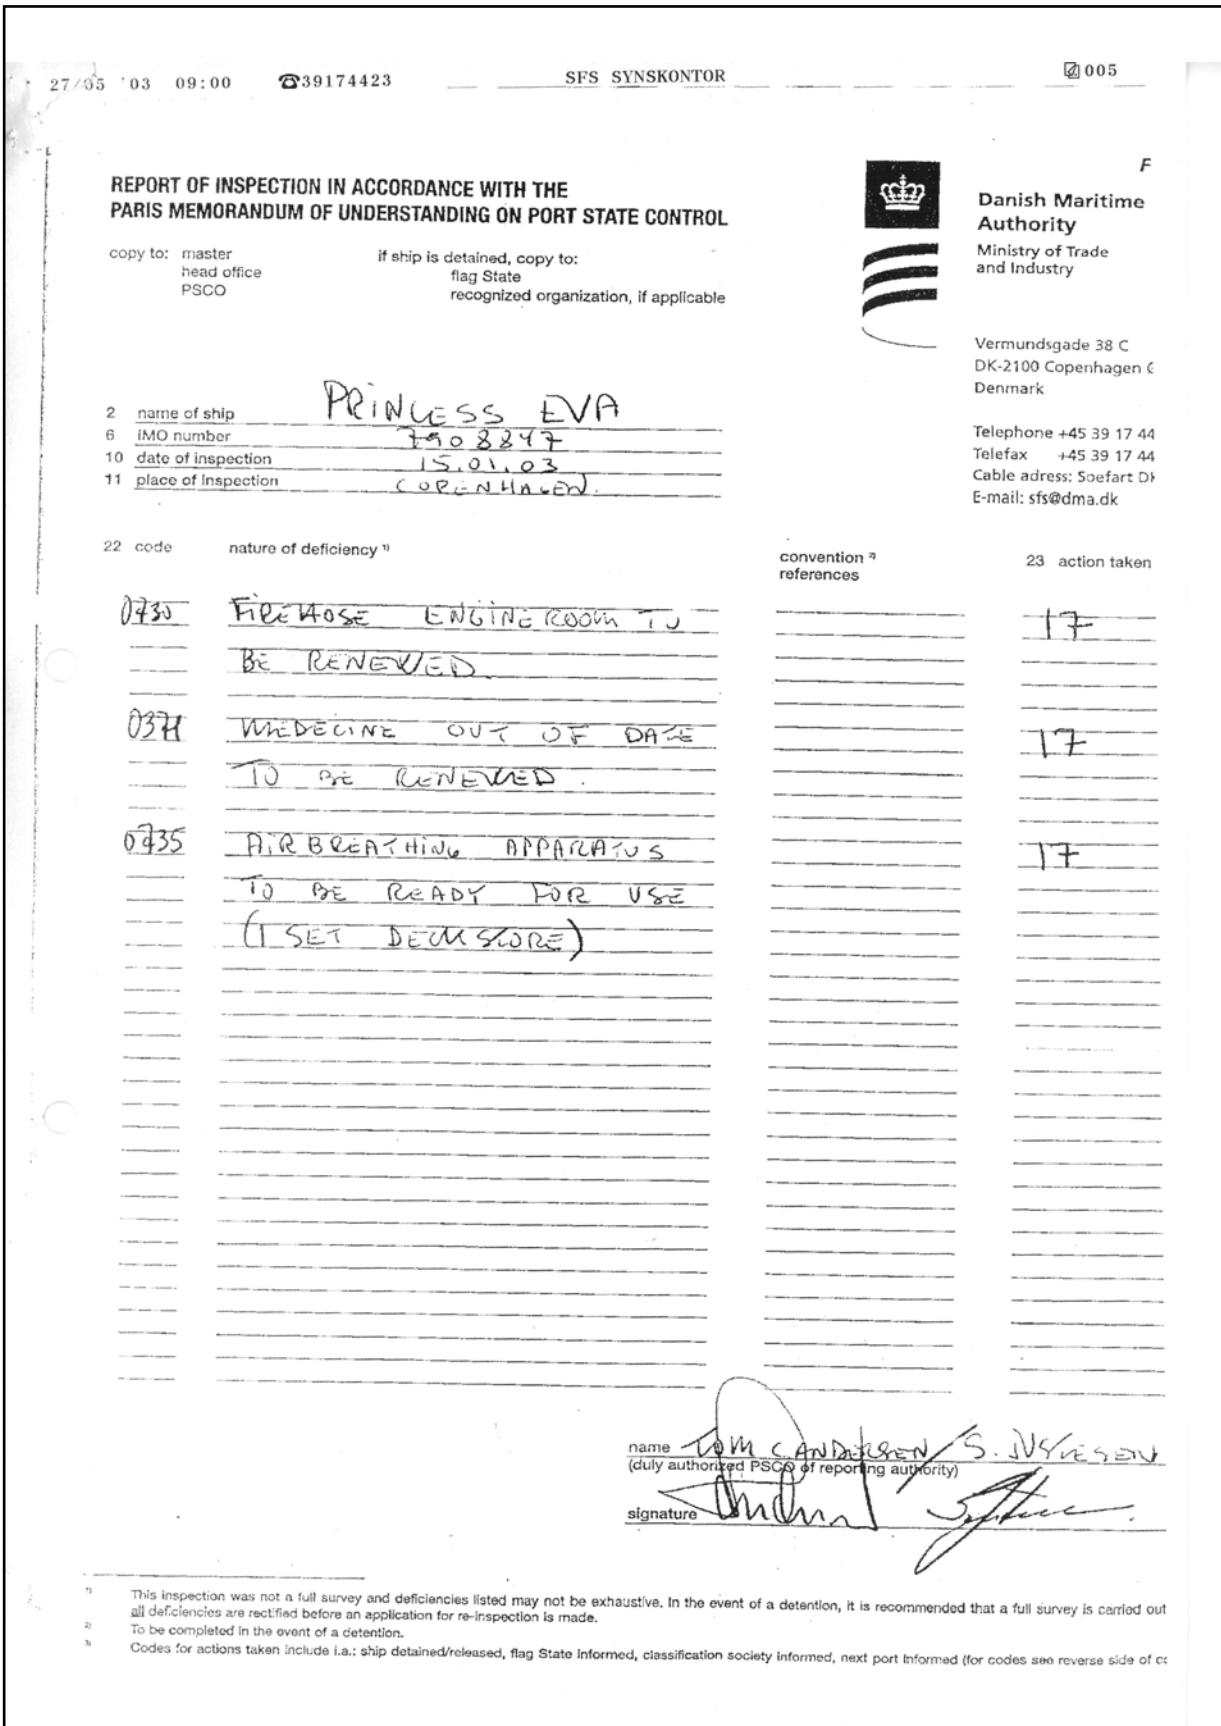 27/05 '03 09:00 ☎39174423 SFS SYNSKONTOR 005
F
REPORT OF INSPECTION IN ACCORDANCE WITH THE
PARIS MEMORANDUM OF UNDERSTANDING ON PORT STATE CONTROL
Danish Maritime
Authority
Ministry of Trade
and Industry
copy to: master
head office
PSCO
if ship is detained, copy to:
flag State
recognized organization, if applicable
Vermundsgade 38 C
DK-2100 Copenhagen
Denmark
Telephone +45 39 17 44
Telefax +45 39 17 44
Cable adress: Soefart
E-mail: sfs@dma.dk
2 name of ship PRINCESS EVA
6 IMO number 7908847
10 date of inspection 15.01.03
11 place of Inspection COPENHAGEN.
22 code nature of deficiency 1) convention 2) 23 action taken
references
0730 FIREHOSE ENGINE ROOM TO 17
BE RENEWED.
0371 MEDECINE OUT OF DATE 17
TO BE RENEWED.
0735 AIR BREATHING APPARATUS 17
TO BE READY FOR USE
(1 SET DECKSTORE)
name TOM C. ANDERSEN / S.
(duly authorized PSCO of reporting authority)
signature
1) This inspection was not a full survey and deficiencies listed may not be exhaustive. In the event of a detention, it is recommended that a full survey is carried out
all deficiencies are rectified before an application for re-inspection is made.
2) To be completed in the event of a detention.
3) Codes for actions taken include i.a.: ship detained/released, flag State informed, classification society informed, next port informed (for codes see reverse side of